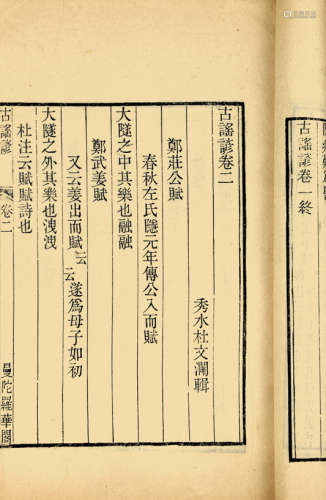 古謠諺卷一終
古謠諺卷二
秀水杜文瀾輯
鄭莊公賦
春秋左氏隱元年傳公入而賦
大隧之中其樂也融融
鄭武姜賦
又云姜出而賦云云遂爲母子如初
大隧之外其樂也洩洩
杜注云賦賦詩也
古謠諺 卷二 曼陀羅華閣